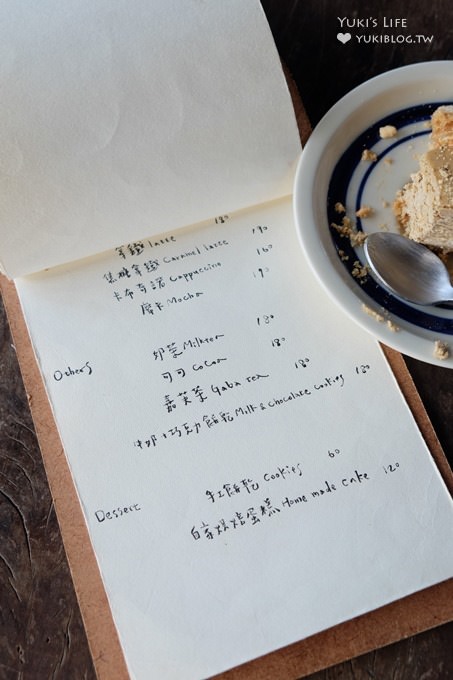 YUKI'S LIFE
YUKIBLOG.TW
拿鐵 latte 180
焦糖拿鐵 Caramel latte 190
卡布奇諾 Cappuccino 160
摩卡 Mocha 190
Others
奶茶 Milktea 180
可可 Cocoa 180
嘉葉茶 Gaba tea 180
牛奶+巧克力餅乾 Milk & Chocolate Cookies 180
Dessert
手工餅乾 Cookies 60
自家烘焙蛋糕 Home made cake 120